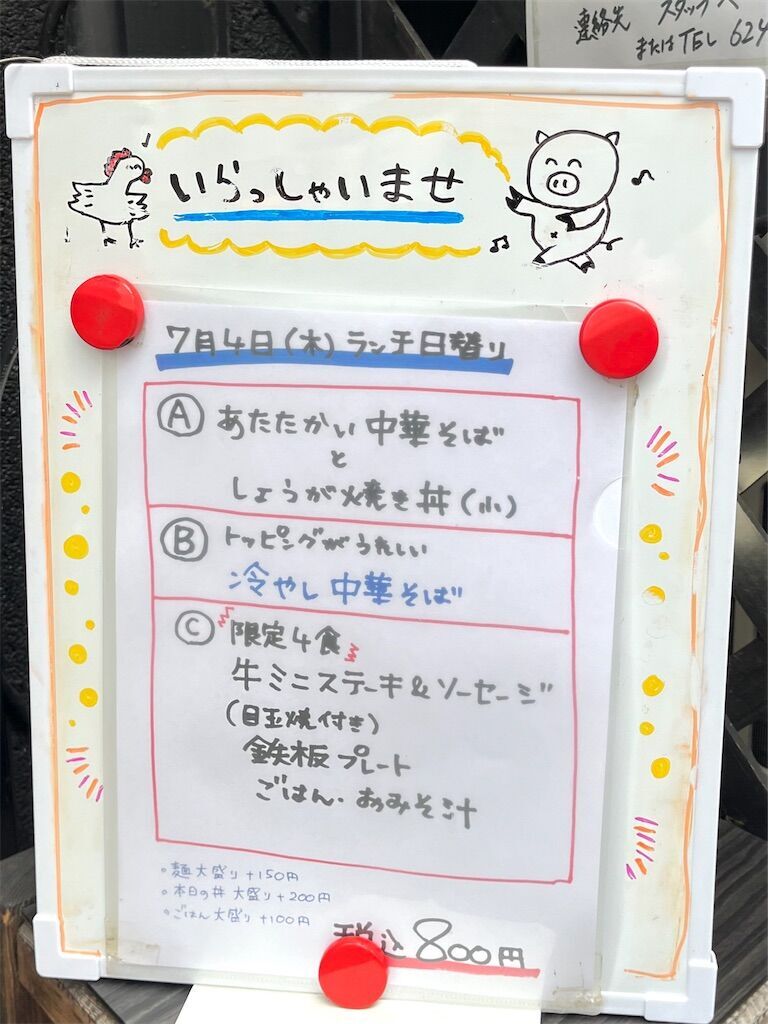 連絡先 スタッフへ
またはTEL 624
いらっしゃいませ
7月4日(木)ランチ日替り
Ⓐ あたたかい中華そば
と
しょうが焼き丼(小)
Ⓑ トッピングがうれしい
冷やし中華そば
Ⓒ 限定4食
牛ミニステーキ&ソーセージ
(目玉焼付き)
鉄板プレート
ごはん・おみそ汁
◦麺大盛り+150円
◦本日の丼 大盛り+200円
◦ごはん大盛り+100円
税込800円